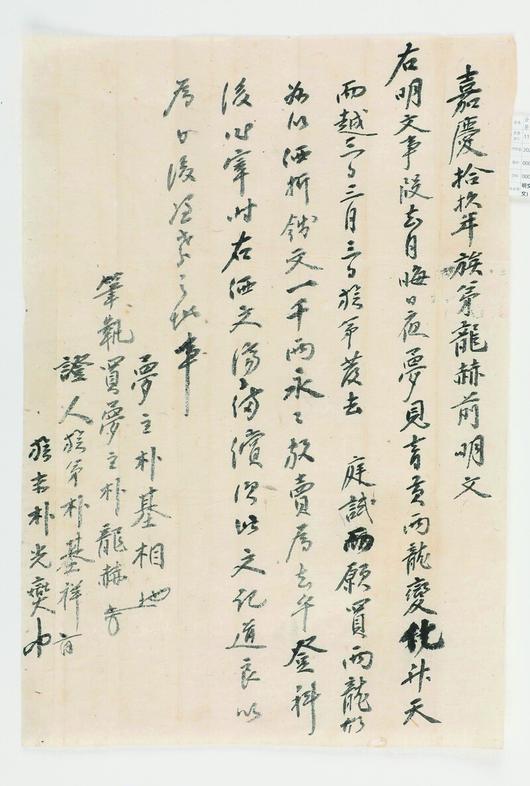 嘉慶拾玖年 族弟龍赫前明文
右明文事段去月晦日夜夢見青黃兩龍變化升天
而越三日三月三日族弟發去 庭試而願買兩龍
以酒折錢文一千兩永永放賣爲去乎登科
後 宰時右酒文備償 此文記 以
爲日後憑考之地事
夢主朴基相
筆執買夢主朴龍赫
證人族弟朴基祥
族 朴光